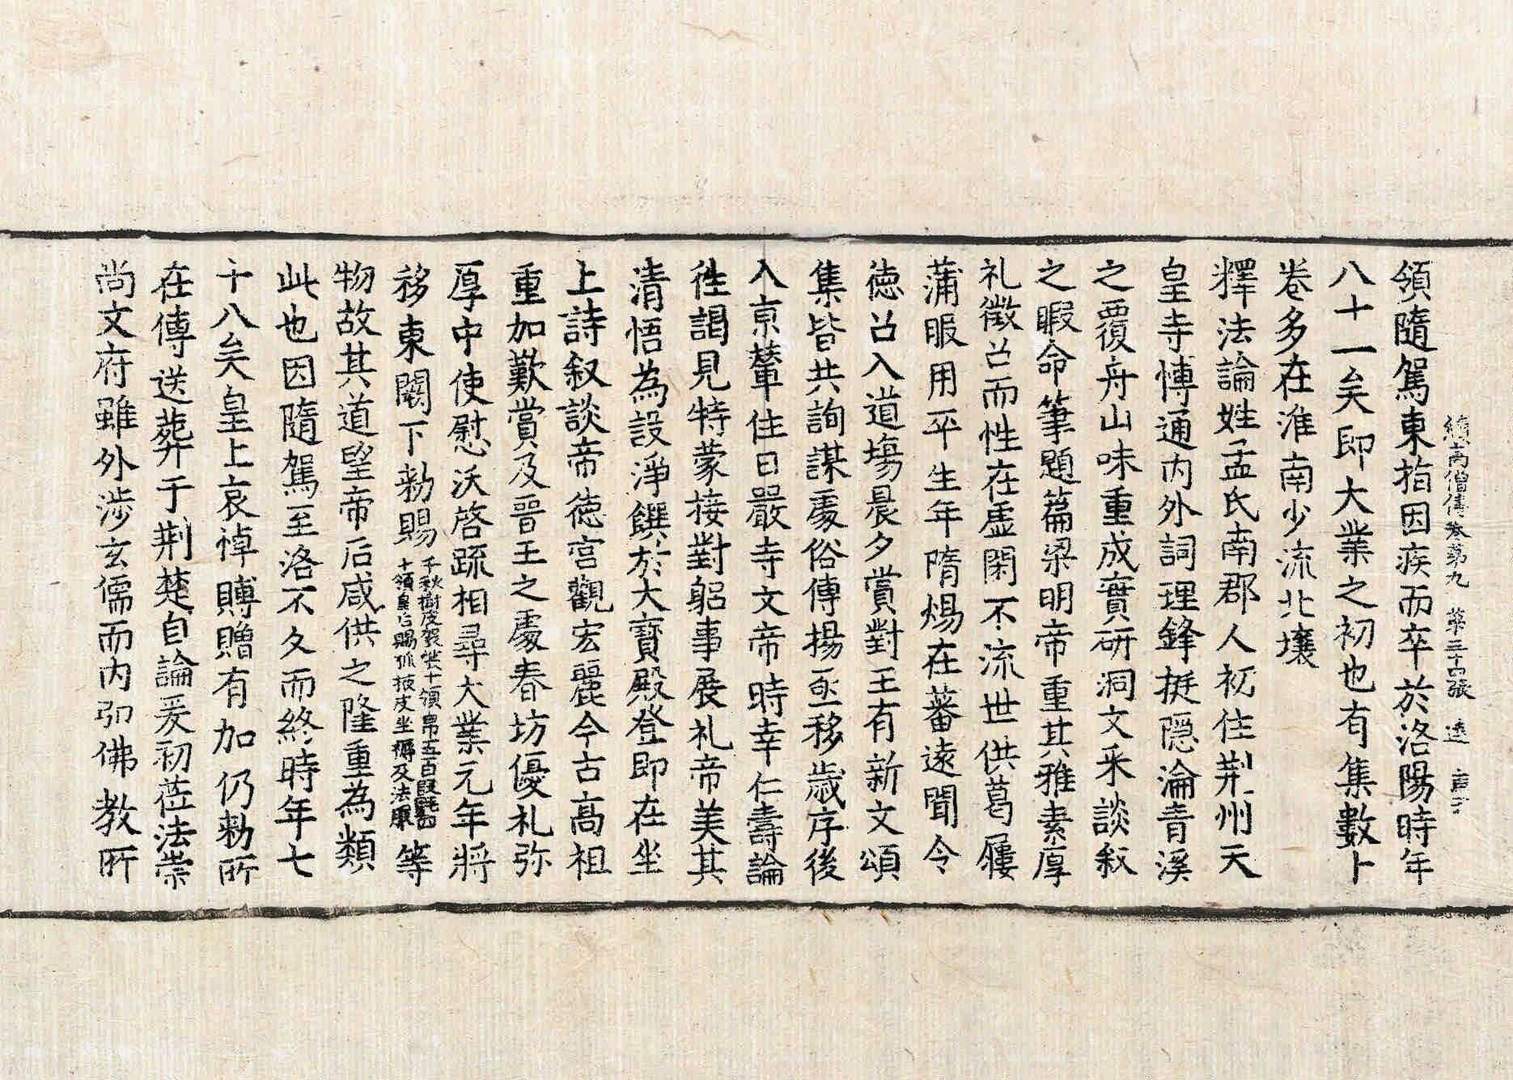 續高僧傳卷第九 第三十四張 逵
領隨駕東指因疾而卒於洛陽時年
八十一矣即大業之初也有集數卜
卷多在淮南少流北壤
釋法論姓孟氏南郡人初住荆州天
皇寺愽通內外詞理鋒挺隱淪青溪
之覆舟山味重成實研洞文采談叙
之暇命筆題篇梁明帝重其雅素厚
礼徵召而性在虛閑不流世供葛屨
蒲服用卒生年隋煬在蕃遠聞令
德召入道場晨夕賞對王有新文頌
集皆共詢謀處俗傳揚亟移歲序後
入京輦住日嚴寺文帝時幸仁壽論
徃謁見特蒙接對躬事展礼帝美其
清悟為設淨饌於大寶殿登即在坐
上詩叙談帝德宮觀宏麗今古高祖
重加歎賞及晉王之處春坊優礼弥
厚中使慰沃啓疏相尋大業元年將
移東闕下勑賜千秋樹皮袈裟十領帛五百段氈四十領皇后賜狐掖皮坐褥及法服等
物故其道望帝后咸供之隆重為類
此也因隨駕至洛不久而終時年七
十八矣皇上哀悼賻贈有加仍勑所
在傳送葬于荆楚自論爰初莅法崇
尚文府雖外涉玄儒而內弘佛教所